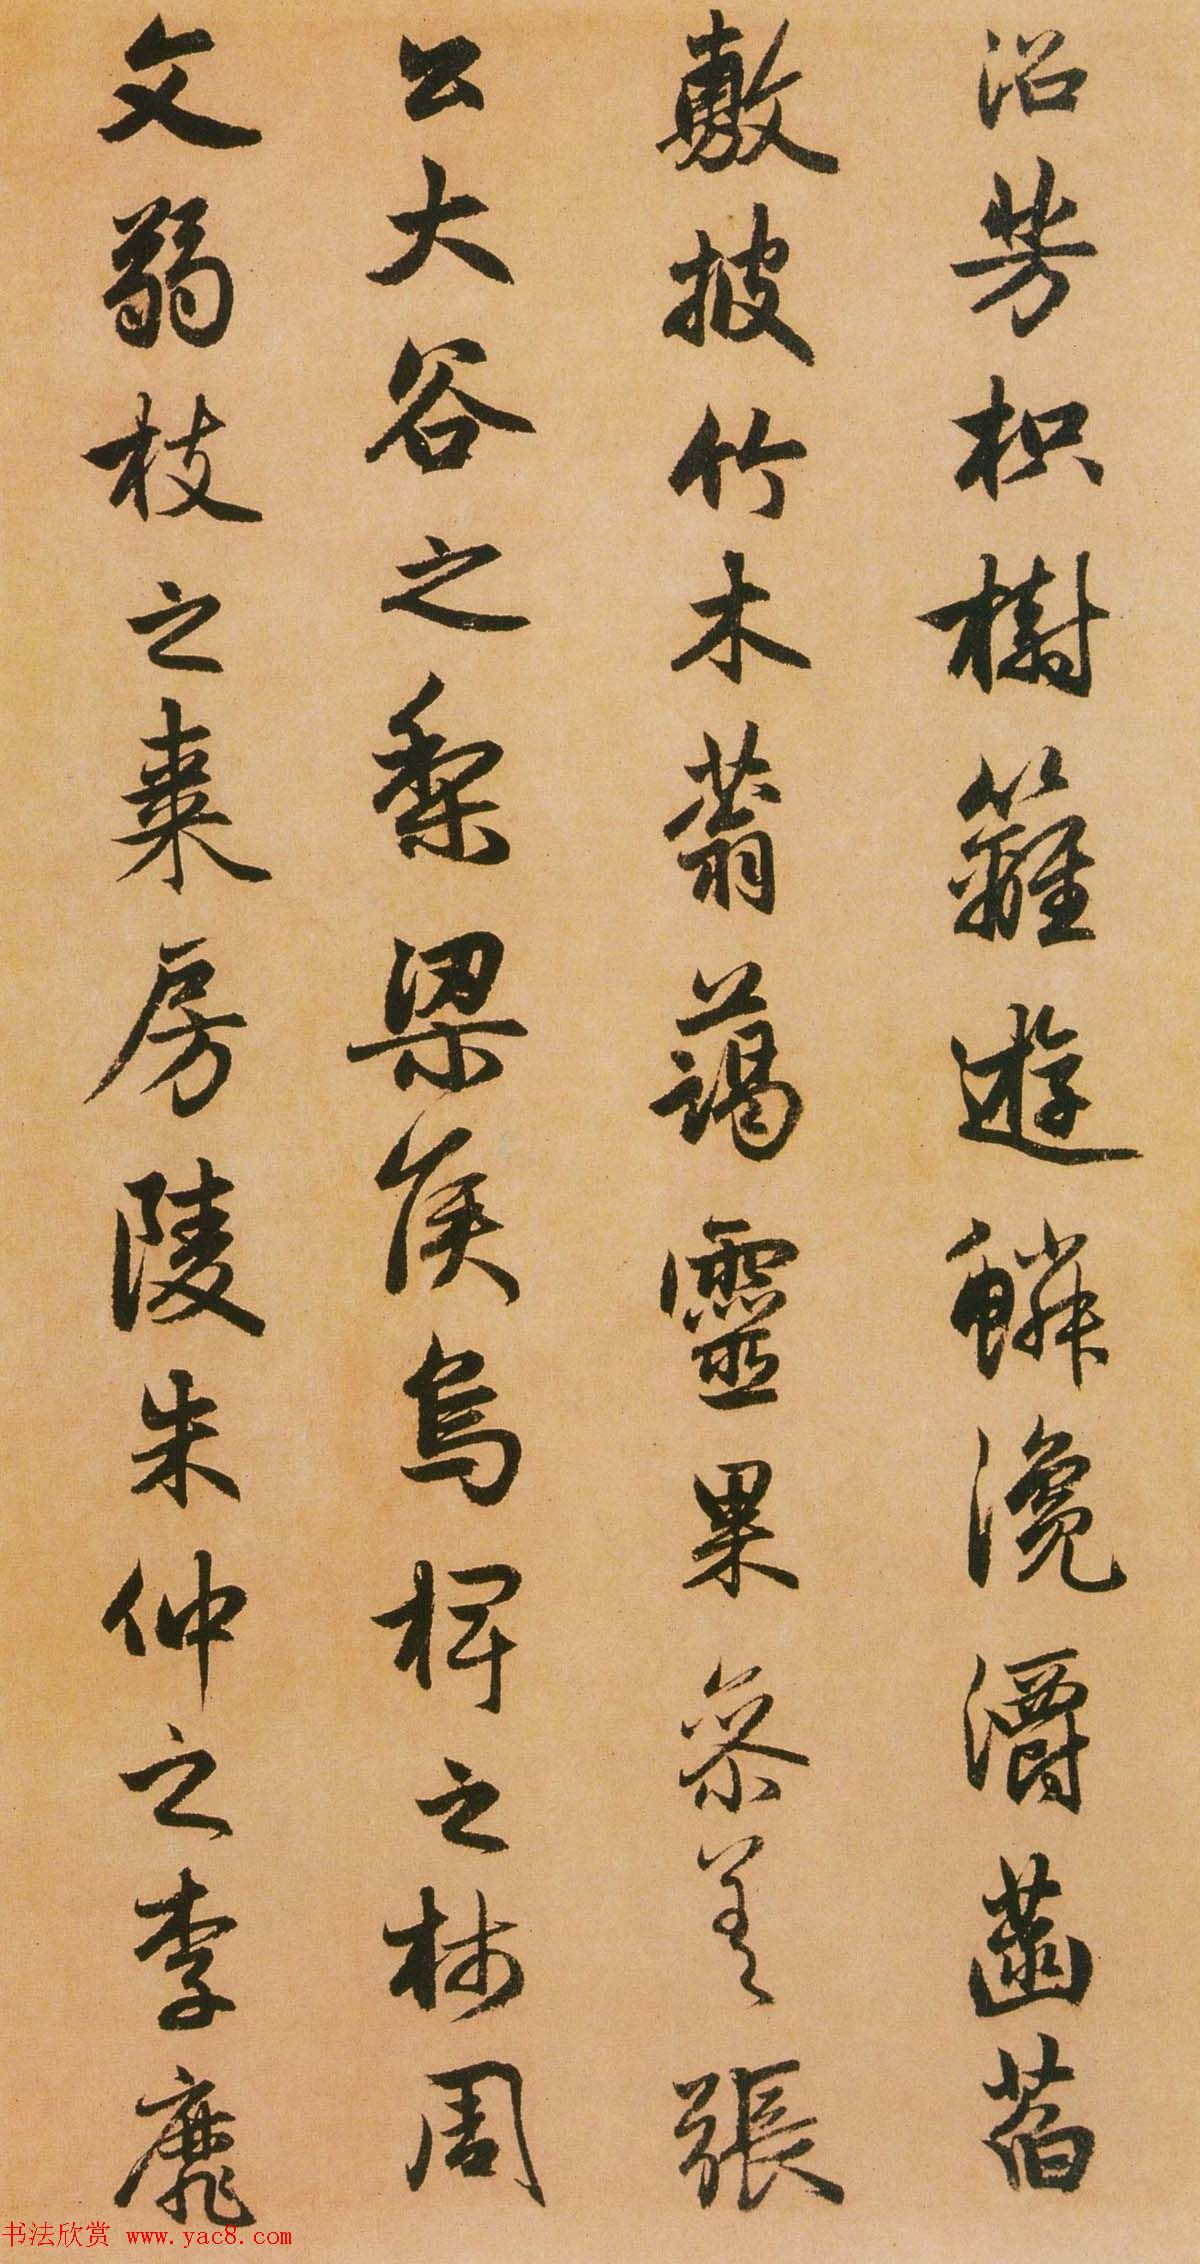 沼芳枳樹籬遊鱗瀺灂菡萏
敷披竹木蓊藹靈果參差張
公大谷之梨梁侯烏椑之柿周
文弱枝之棗房陵朱仲之李靡
书法欣赏 www.yac8.com